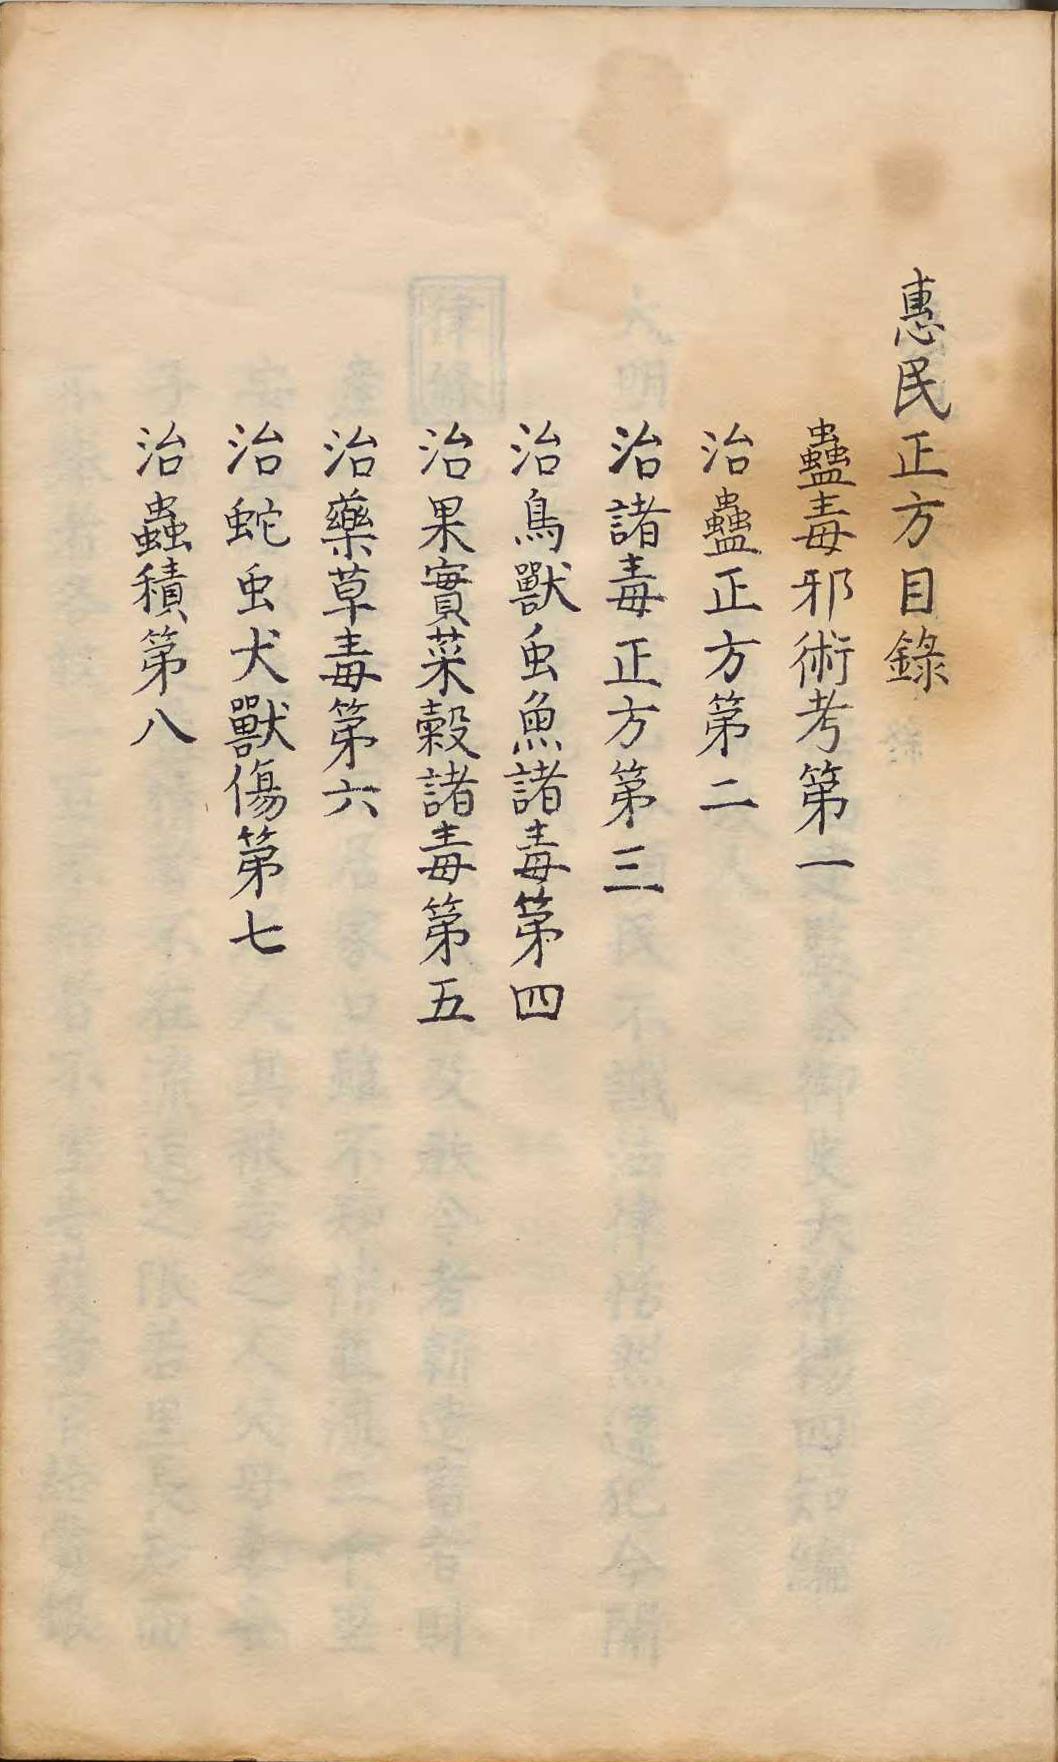 惠民正方目錄
蠱毒邪術考第一
治蠱正方第二
治諸毒正方第三
治鳥獸虫魚諸毒第四
治果實菜穀諸毒第五
治藥草毒第六
治蛇虫犬獸傷第七
治蟲積第八